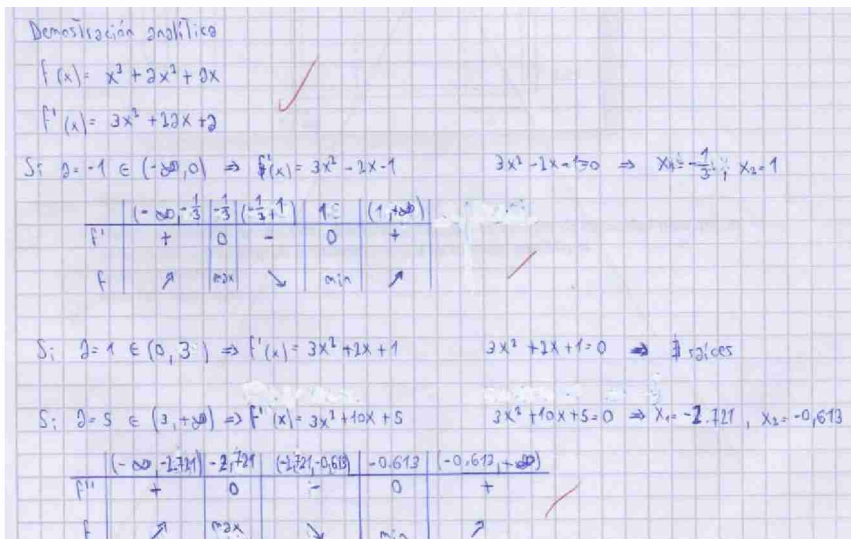 Demostración analítica
f(x) = x³ + ax² + ax
f'(x) = 3x² + 2ax + a
Si a = -1 ∈ (-∞, 0) ⇒ f'(x) = 3x² - 2x - 1 3x² - 2x - 1 = 0 ⇒ x₁ = -1/3 ; x₂ = 1
(-∞, -1/3 | -1/3 | (-1/3, 1 | 1 | (1, +∞)
f' + 0 - 0 +
f ↗ max ↘ min ↗
Si a = 1 ∈ (0, 3) ⇒ f'(x) = 3x² + 2x + 1 3x² + 2x + 1 = 0 ⇒ ∄ raíces
Si a = 5 ∈ (3, +∞) ⇒ f'(x) = 3x² + 10x + 5 3x² + 10x + 5 = 0 ⇒ x₁ = -2.721 , x₂ = -0,613
(-∞, -2.721) | -2,721 | (-2,721, -0,613) | -0.613 | (-0,613, +∞)
f'' + 0 - 0 +
f ↗ max ↘ min ↗